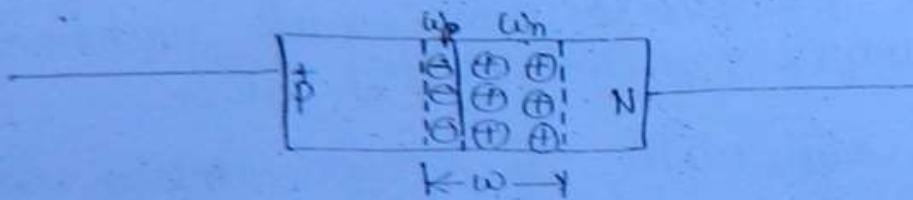 Wp Wn
P⁺ N
⊖ ⊕ ⊕
⊖ ⊕ ⊕
⊖ ⊕ ⊕
W